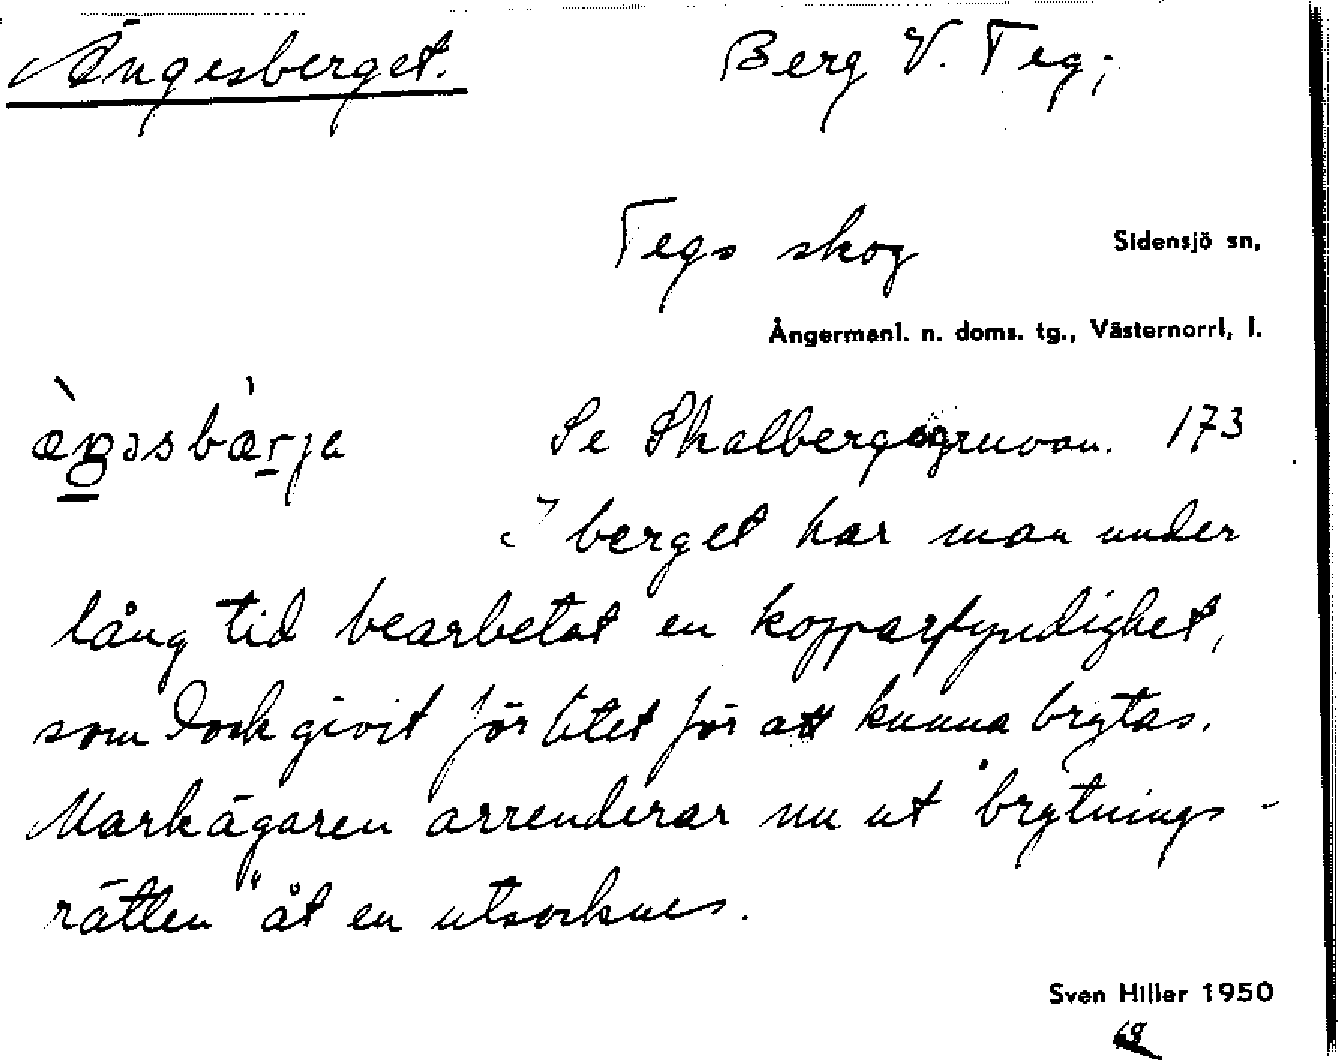 Ängesberget. Berg V. Teg;
Tegs skog Sidensjö sn,
Ångermanl. n. doms. tg., Västernorrl, l.
Se Skalbergsgruvan. 173
I berget har man under
lång tid bearbetat en kopparfyndighet,
som dock givit för litet för att kunna brytas.
Markägaren arrenderar nu ut "brytnings-
rätten" åt en utsocknes.
Sven Hiller 1950